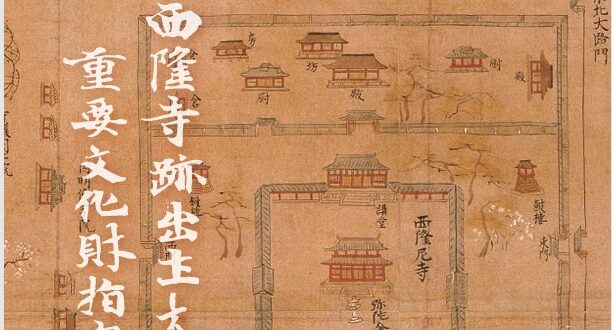 西隆寺跡出土木
重要文化財指定
東北大路門
房
坊
殿
厨
厨
殿
倉
講堂
鼓樓
東門
西隆尼寺
弥陀
鐘樓
西